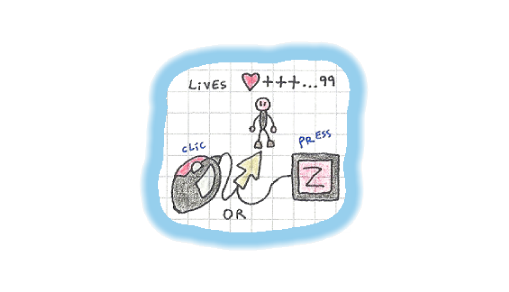 LiVES +++...99
CLiC
PRESS
Z
OR